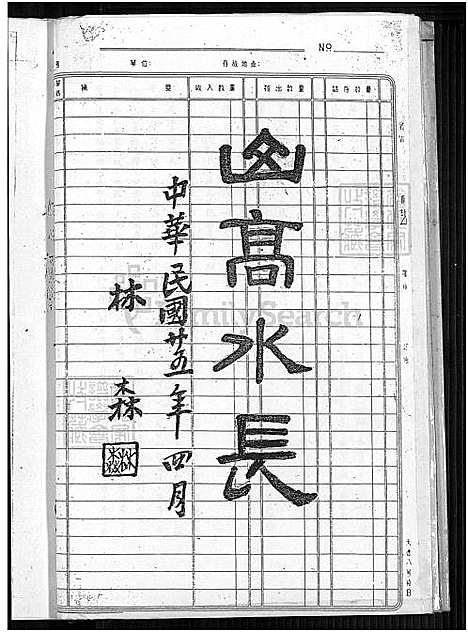 No
單位:
存放地點:
收入數量
付出數量
結存數量
山高水長
中華民國廿五年四月
林森
FamilySearch